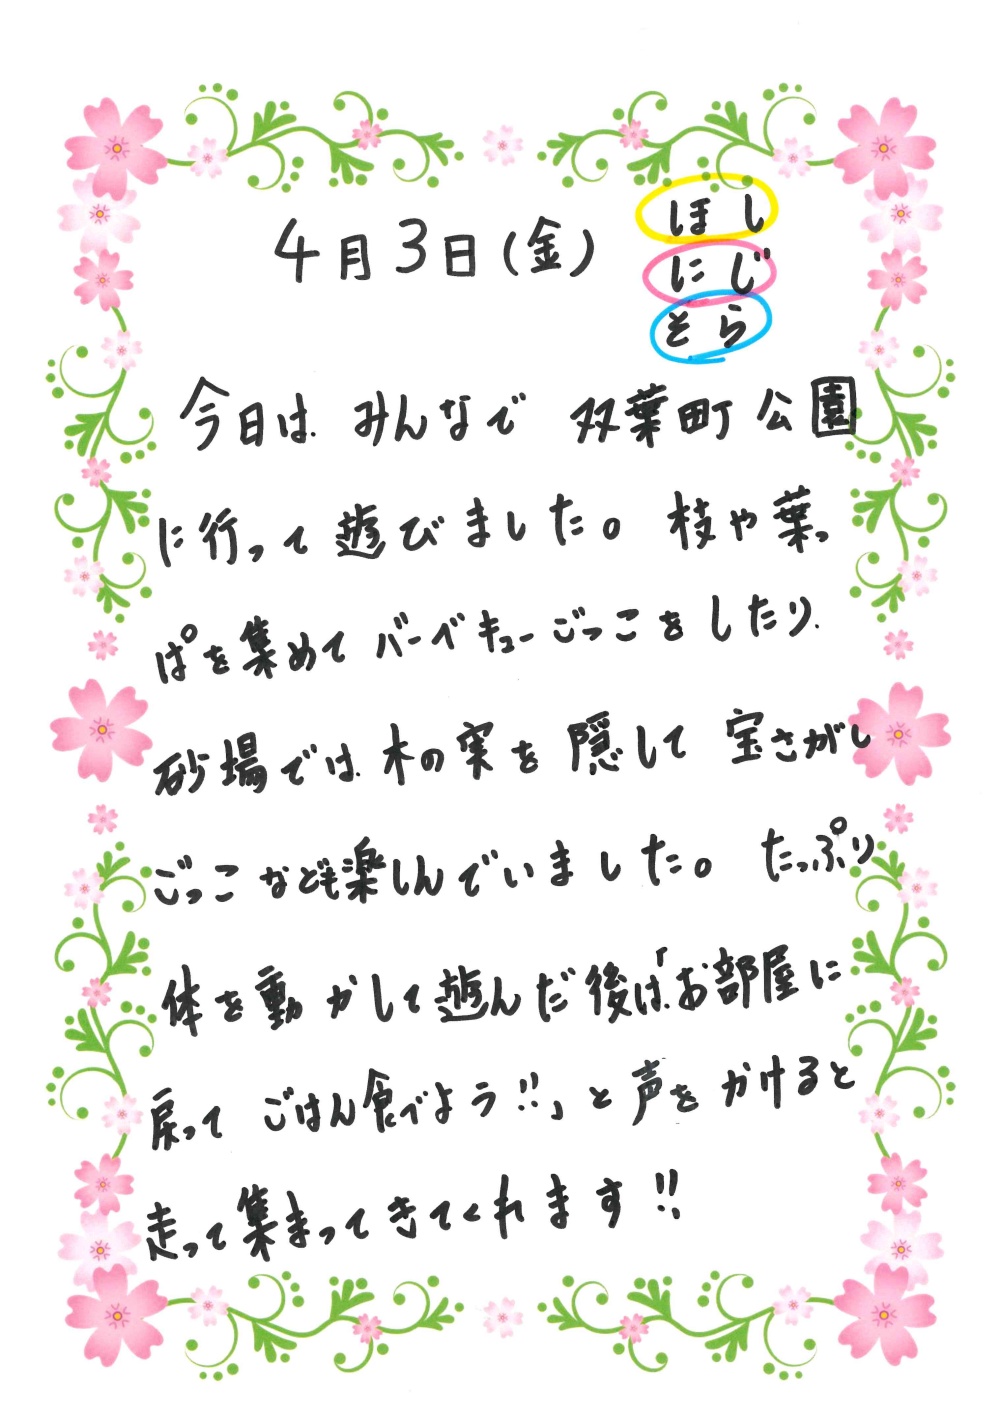 4月3日(金)
ほし
にじ
そら
今日は みんなで 双葉町公園
に行って遊びました。枝や葉っ
ぱを集めてバーベキューごっこをしたり、
砂場では木の実を隠して宝さがし
ごっこなども楽しんでいました。たっぷり
体を動かして遊んだ後は、「お部屋に
戻って ごはん食べよう!!」と声をかけると
走って集まってきてくれます!!